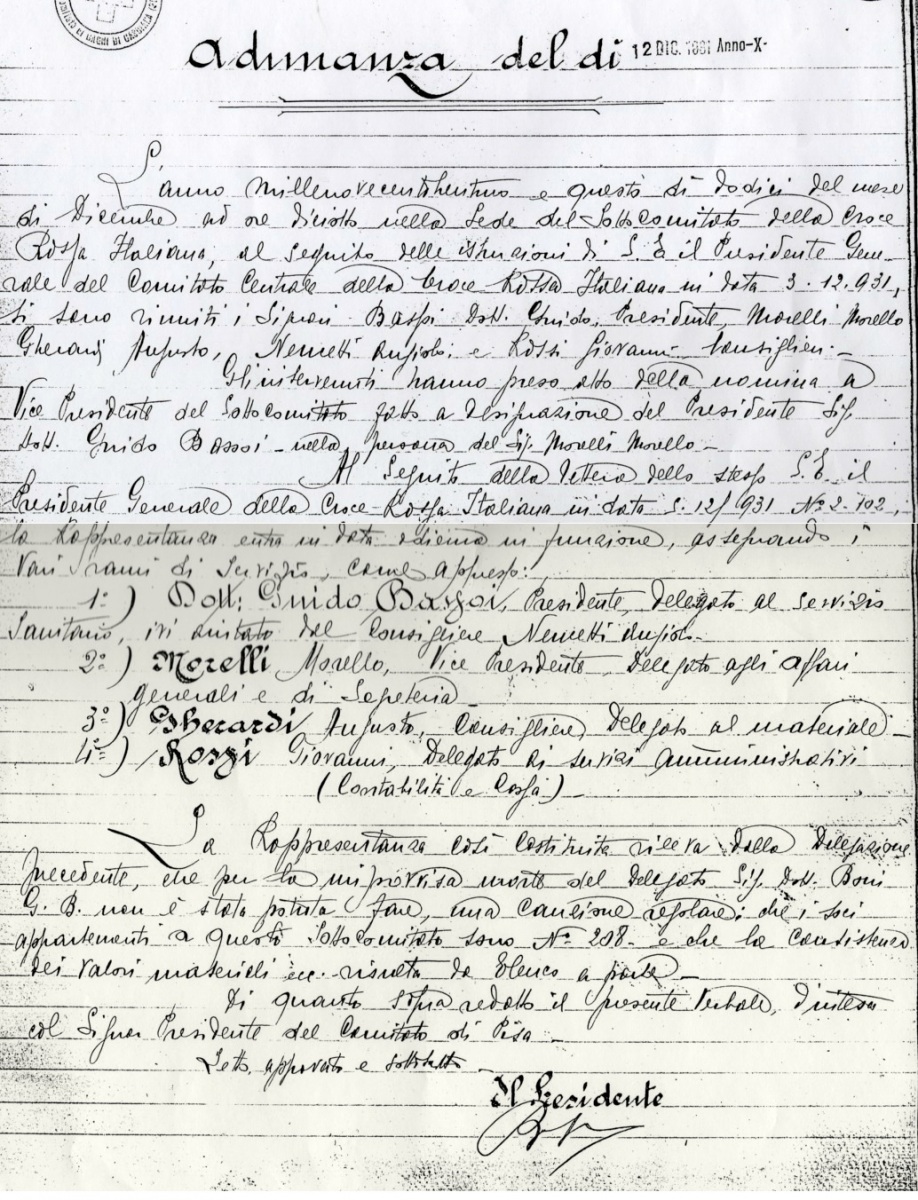 BAGNI DI CASCIANA
Adunanza del dì 12 DIC. 1931 Anno-X-
L'anno millenovecentotrentuno e questo dì dodici del mese
di Dicembre ad ore diciotto nella Sede del Sottocomitato della Croce
Rossa Italiana, al seguito delle istruzioni di S. E il Presidente Gene-
rale del Comitato Centrale della Croce Rossa Italiana in data 3.12.931,
si sono riuniti i Signori Dott. Guido, Presidente, Morelli Morello
Gherardi Augusto, Nencetti Angiolo e Rossi Giovanni Consiglieri.-
Gli intervenuti hanno preso atto della nomina a
Vice Presidente del Sottocomitato fatta a designazione del Presidente Sig.
Dott. Guido - nella persona del Sig. Morelli Morello -
Al Seguito della lettera dello stesso S. E il
Presidente Generale della Croce Rossa Italiana in data 5.12/931 Nº 2.102,
la Rappresentanza entra in data odierna in funzione, assegnando i
Vari rami di Servizio, come appresso:
1º) Dott: Guido Presidente, delegato al servizio
Sanitario, ivi aiutato dal Consigliere Nencetti Angiolo-
2º) Morelli Morello, Vice Presidente Delegato agli affari
generali e di Segreteria
3º) Gherardi Augusto, Consigliere Delegato al materiale -
4º) Rossi Giovanni, Delegato ai servizi Amministrativi
(Contabilità e Cassa) -
La Rappresentanza così costituita rileva dalla Delegazione
precedente, che per la improvvisa morte del Delegato Sig. Dott. Boni
G. B. non è stata potuta fare, una consegna regolare; che i soci
appartenenti a questo Sottocomitato sono Nº 208 - e che la consistenza
dei valori materiali ecc. risulta da Elenco a parte -
Di quanto sopra redatto il presente Verbale, d'intesa
col Signor Presidente del Comitato di Pisa -
Letto, approvato e sottoscritto -
Il Presidente